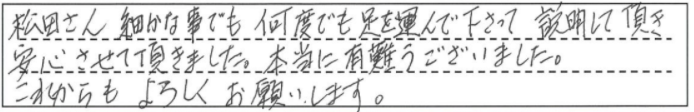 松田さん 細かな事でも 何度でも足を運んで下さって 説明して頂き
安心させて頂きました。本当に有難うございました。
これからも よろしく お願いします。